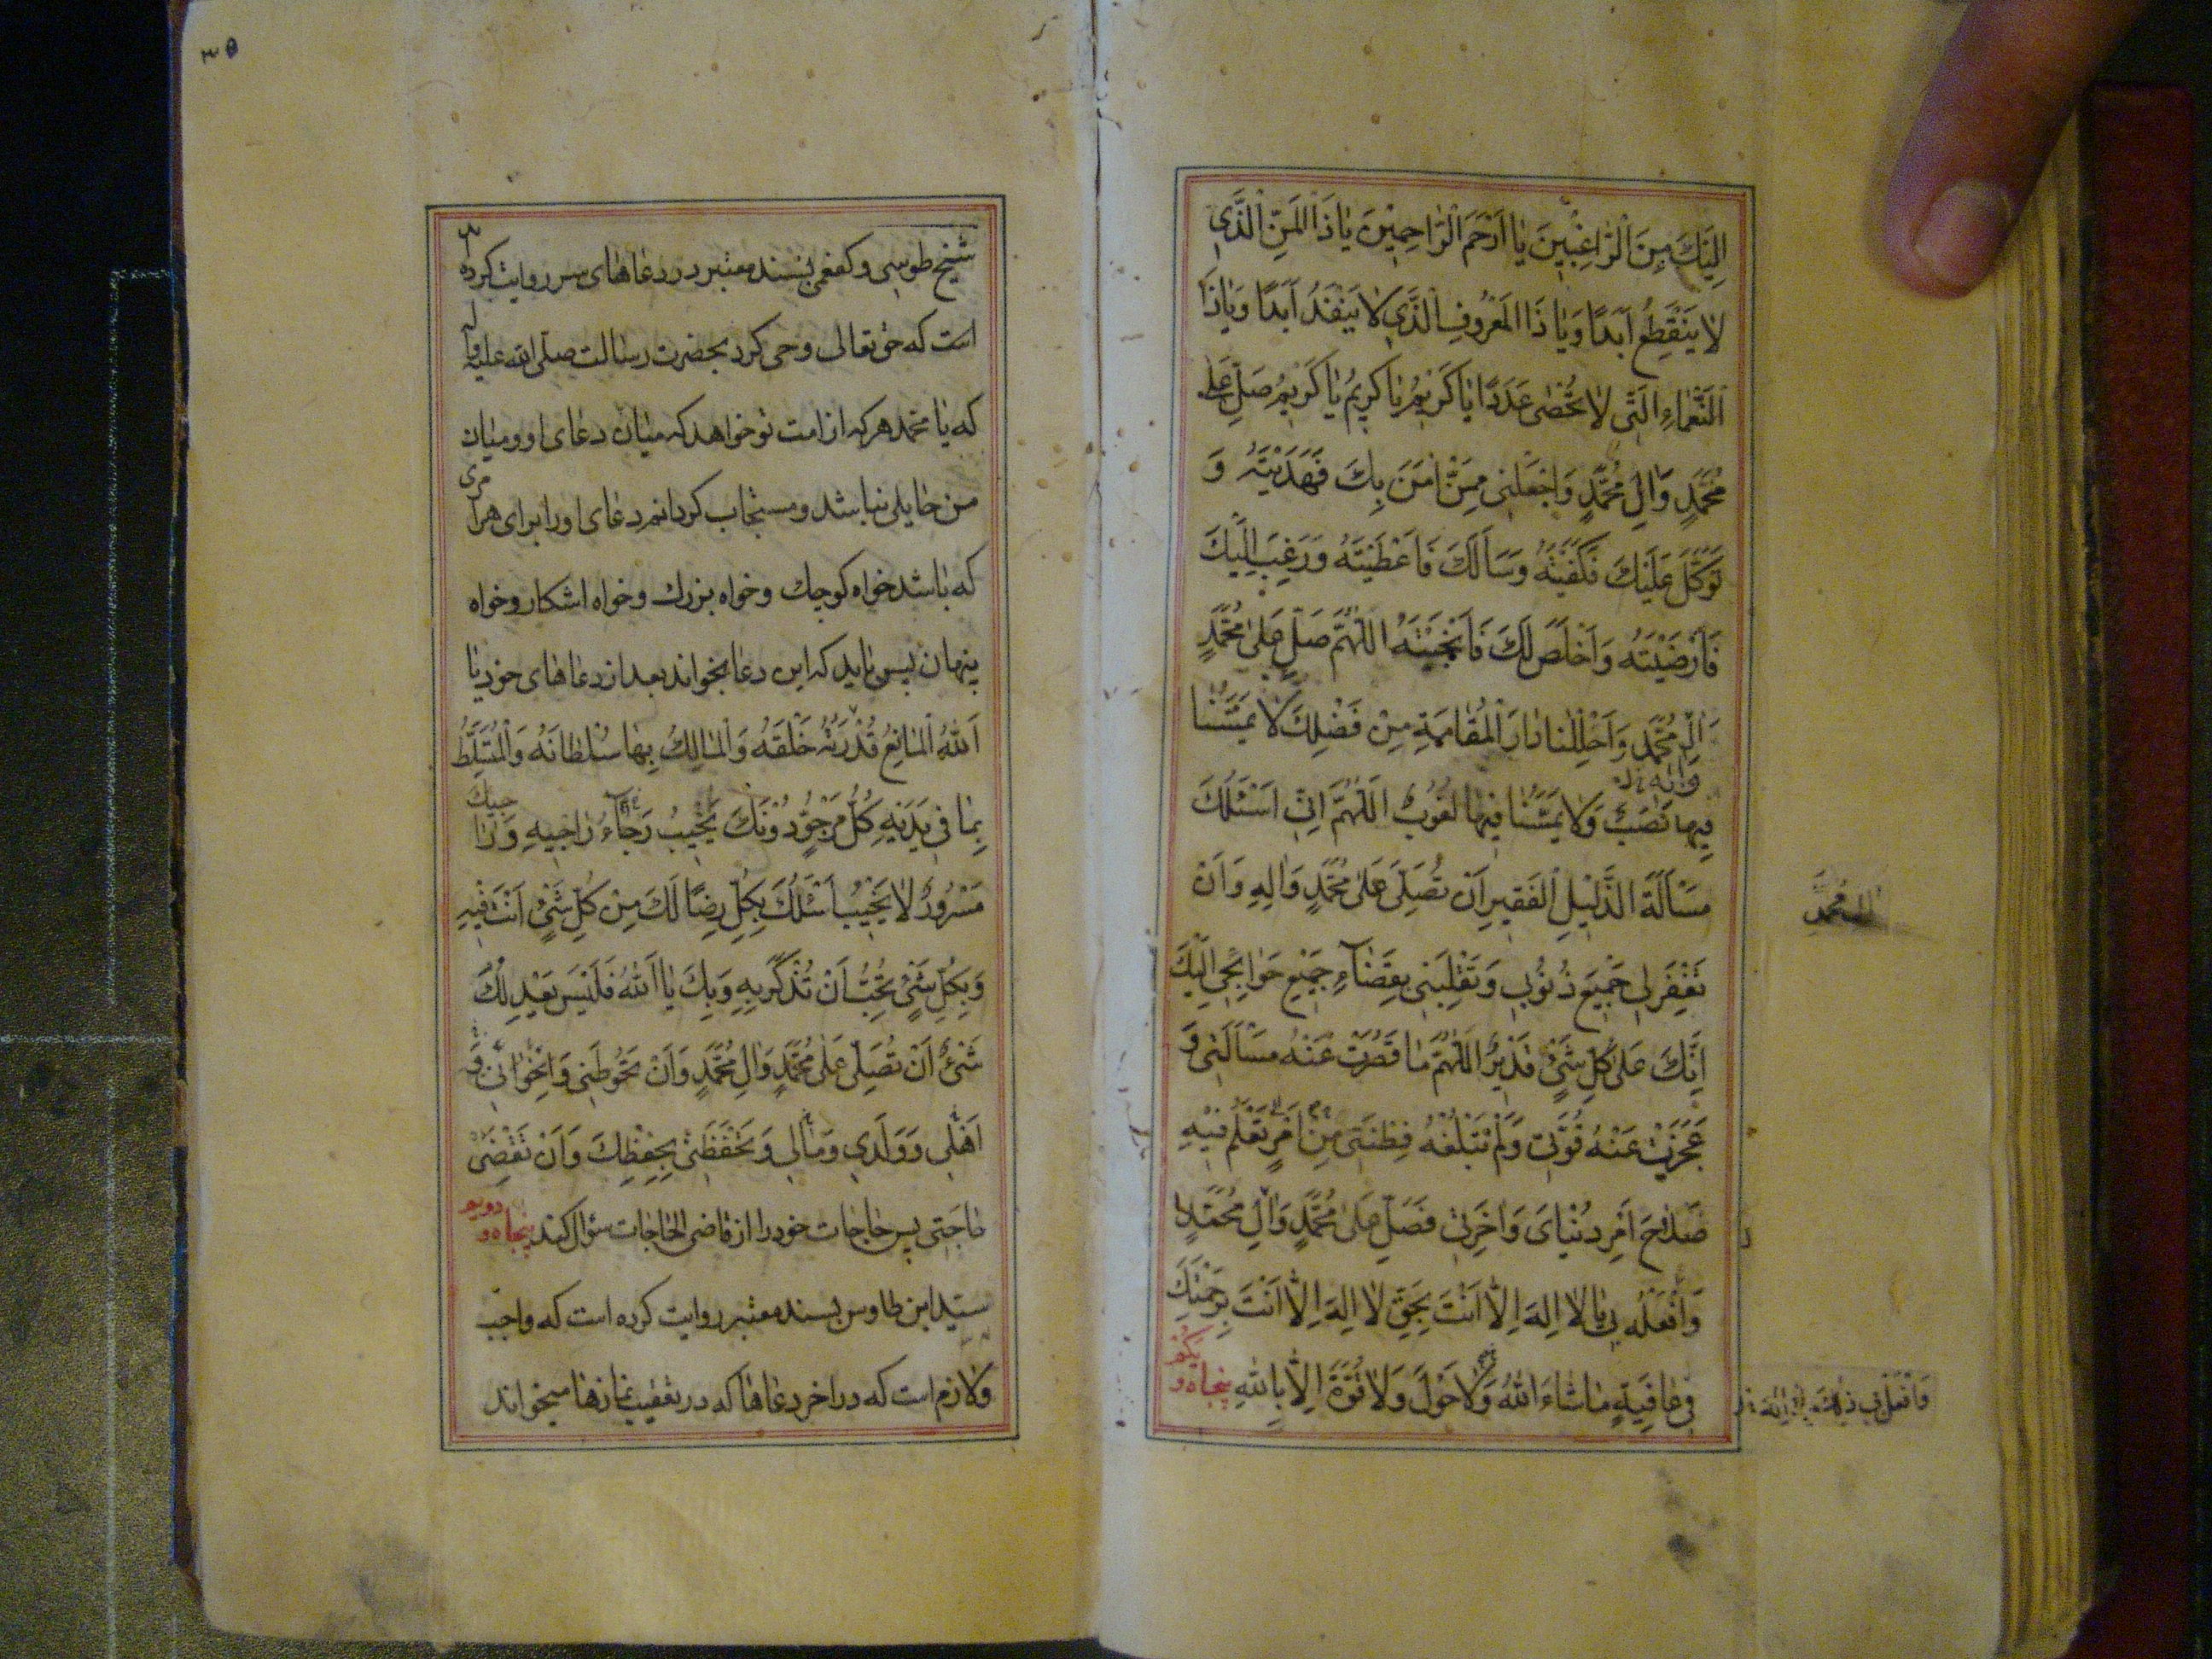 اِلَيْكَ مِنَ الرّٰاغِبْيِنَ يٰا اَرْحَمَ الْرّٰاحِمِيْنَ يٰا ذَا الْمَنِّ الَّذَّي
لٰا يَنْقَطِعُ اَبَدًا وَيٰا ذَا الْمَعْرُوفِ الَّذَّي لٰا يَنْفَدُ اَبَدًا وَيٰا ذَا
النَّعْمٰاءِ الَّتّي لٰا تُحْصٰى عَدَدًا يٰا كَرِيْمُ يٰا كَرِيْمُ يٰا كَرِيْمُ صَلِّ عَلٰى
مُحَمَّدٍ وَاٰلِ مُحَمَّدٍ وَاجْعَلْنٖي مِمَّنْ اٰمَنَ بِكَ فَهَدَيْتَهُ وَ
تَوَكَّلَ عَلَيْكَ فَكَفَيْتَهُ وَسَاَلَكَ فَاَعْطَيْتَهُ وَرَغِبَ اِلَيْكَ
فَاَرْضَيْتَهُ وَاَخْلَصَ لَكَ فَاَنْجَيْتَهُ اللّٰهُمَّ صَلِّ عَلىٰ مُحَمَّدٍ
وَاٰلِ مُحَمَّدٍ وَاَحْلِلْنٰا دٰارَ الْمُقٰامَةِ مِنْ فَضْلِكَ لٰا يَمَسُّنٰا
فِيهٰا نَصَبٌ وَلٰا يَمَسُّنٰا فِيْهٰا لُغُوبٌ اَللّٰهُمَّ اِنِّي اَسْئَلُكَ
مَسْاَلَةَ الذَّلِيْلِ الْفَقيرِ اَنْ تُصَلِّيَ عَلىٰ مُحَمَّدٍ وَاٰلِهِ وَاَنْ
تَغْفِرَ لي جَمْيِعَ ذُنُوبي وَتَقْلِبَنٖي بِقَضٰاۤءِ جَمْيِعِ حَوٰائِجٖي اِلَيْكَ
اِنَّكَ عَلىٰ كُلِّ شَيْءٍ قَدْيِرٌ اَللّٰهُمَّ مٰا قَصُرَتْ عَنْهُ مَسْاَلَتٖي وَ
عَجَزَتْ عَنْهُ قُوَّتي وَلَمْ تَبْلُغْهُ فِطْنَتٖي مِنْ اَمْرٍ تَعْلَمُ فيْهِ
صَلٰاحَ اَمْرِ دُنْيٰايَ وَاٰخِرَتٖي فَصَلِّ عَلىٰ مُحَمَّدٍ وَاٰلِ مُحَمَّدٍ
وَافْعَلْهُ بي يٰا لٰا اِلٰهَ اِلّٰا اَنْتَ بِحَقِّ لٰا اِلٰهَ اِلّٰا اَنْتَ بِرَحْمَتِكَ
في عٰافِيَةٍ مٰا شٰاءَ اللّٰهُ وَلٰا حَوْلَ وَلٰا قُوَّةَ اِلّٰا بِاللّٰهِ پنجاه و يكم
٣٥
شيخ طوسى و كفعمى بسند معتبر در دعاهاى سر روايت كرده
است كه حق تعالى وحى كرد بحضرت رسالت صلى الله عليه واله
كه يا محمد هر كه از امت تو خواهد كه ميان دعاى او و ميان
من حايلى نباشد و مستجاب گردانم دعاى او را براى هر امرى
كه باشد خواه كوچك و خواه بزرك و خواه اشكار و خواه
پنهان پس بايد كه اين دعا بخواند بعد از دعاهاى خود يٰا
اَللّٰهُ الْمٰانِعُ قُدْرَتُهُ خَلْقَهُ وَالْمٰالِكُ بِهٰا سُلْطٰانَهُ وَالْمُتَسَلِّطُ
بِمٰا في يَدَيْهِ كُلُّ مَرْجُوٍّ دُوْنَكَ يَخْيِبُ رَجٰاۤءُ رٰاجيهِ وَرٰاجيكَ
مَسْرُورٌ لٰا يَخْيِبُ اَسْئَلُكَ بِكُلِّ رِضًا لَكَ مِنْ كُلِّ شَيْءٍ اَنْتَ فيْهِ
وَبِكُلِّ شَيْءٍ تُحِبُّ اَنْ تُذْكَرَ بِهِ وَبِكَ يٰا اَللّٰهُ فَلَيْسَ يَعْدِلُكَ
شَيْءٌ اَنْ تُصَلِّيَ عَلىٰ مُحَمَّدٍ وَاٰلِ مُحَمَّدٍ وَاَنْ تَحُوْطَنٖي وَاِخْوٰاني وَ
اَهْلي وَوَلَدي وَمٰالي وَتَحْفَظَنٖي بِحِفْظِكَ وَاَنْ تَقْضِيَ
حٰاجَتٖي پس حاجات خود را از قاضى الحاجات سؤال كند پنجاه و دويم
سيد ابن طاوس بسند معتبر روايت كرده است كه واجب
ولازم است كه در اخر دعاها كه در تعقيب نمازها ميخواند